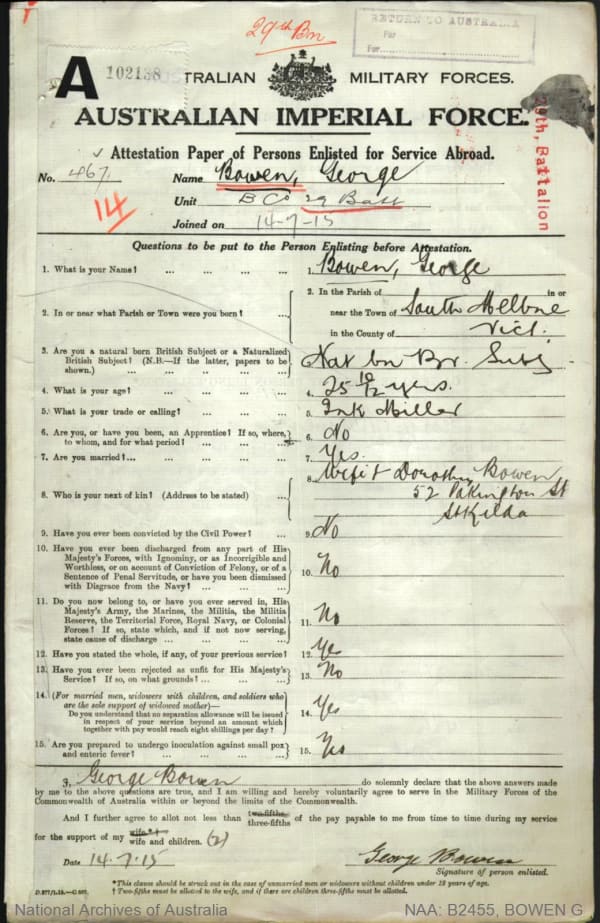 29th Bn
RETURN TO AUSTRALIA
Per
For
A 102138 TRALIAN MILITARY FORCES.
AUSTRALIAN IMPERIAL FORCE.
29th, Battalion
Attestation Paper of Persons Enlisted for Service Abroad.
No. 467 Name Bowen, George
14
Unit B Co 29 Batt
Joined on 14-7-15
Questions to be put to the Person Enlisting before Attestation.
1. What is your Name? ... ... ... ... 1. Bowen, George
2. In or near what Parish or Town were you born? ... 2. In the Parish of in or
near the Town of South Melbne
in the County of Vict.
3. Are you a natural born British Subject or a Naturalized
British Subject? (N.B.—If the latter, papers to be
shown.) ... ... ... ... 3. Nat bn Br. Subj
4. What is your age? ... ... ... ... 4. 25 10/12 yrs.
5. What is your trade or calling? ... ... ... 5. Ink Miller
6. Are you, or have you been, an Apprentice? If so, where,
to whom, and for what period? ... ... ... 6. No
7. Are you married? ... ... ... ... 7. Yes.
8. Who is your next of kin? (Address to be stated) ... 8. Wife Dorothy Bowen
52 Pakington St
St Kilda
9. Have you ever been convicted by the Civil Power? ... 9. No
10. Have you ever been discharged from any part of His
Majesty's Forces, with Ignominy, or as Incorrigible and
Worthless, or on account of Conviction of Felony, or of a
Sentence of Penal Servitude, or have you been dismissed
with Disgrace from the Navy? ... ... ... 10. No
11. Do you now belong to, or have you ever served in, His
Majesty's Army, the Marines, the Militia, the Militia
Reserve, the Territorial Force, Royal Navy, or Colonial
Forces? If so, state which, and if not now serving,
state cause of discharge ... ... ... 11. No
12. Have you stated the whole, if any, of your previous service? 12. Yes
13. Have you ever been rejected as unfit for His Majesty's
Service? If so, on what grounds? ... ... ... 13. No
14. (For married men, widowers with children, and soldiers who
are the sole support of widowed mother)—
Do you understand that no separation allowance will be issued
in respect of your service beyond an amount which
together with pay would reach eight shillings per day? 14. Yes
15. Are you prepared to undergo inoculation against small pox
and enteric fever? ... ... ... ... 15. Yes
I, George Bowen do solemnly declare that the above answers made
by me to the above questions are true, and I am willing and hereby voluntarily agree to serve in the Military Forces of the
Commonwealth of Australia within or beyond the limits of the Commonwealth.
And I further agree to allot not less than two-fifths three-fifths of the pay payable to me from time to time during my service
for the support of my wife*† wife and children. (2)
Date 14.7.15 George Bowen
Signature of person enlisted.
*This clause should be struck out in the case of unmarried men or widowers without children under 18 years of age.
† Two-fifths must be allotted to the wife, and if there are children three-fifths must be allotted.
National Archives of Australia NAA: B2455, BOWEN G